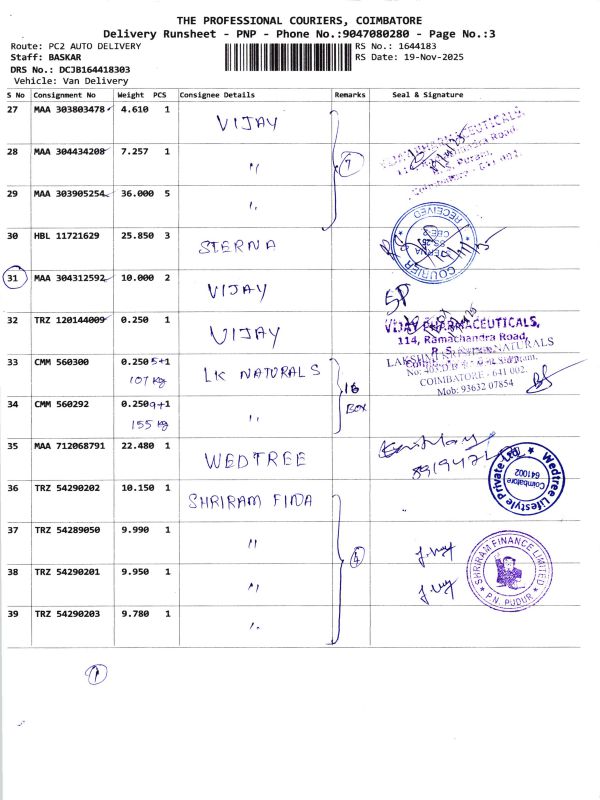 THE PROFESSIONAL COURIERS, COIMBATORE
Delivery Runsheet - PNP - Phone No.:9047080280 - Page No.:3
Route: PC2 AUTO DELIVERY
RS No.: 1644183
Staff: BASKAR
RS Date: 19-Nov-2025
DRS No.: DCJB164418303
Vehicle: Van Delivery
S No Consignment No Weight PCS Consignee Details Remarks Seal & Signature
27 MAA 303803478 4.610 1 VIJAY
28 MAA 304434208 7.257 1 〃 7
29 MAA 303905254 36.000 5 〃
30 HBL 11721629 25.850 3 STERNA
COURIER RECEIVED
31 MAA 304312592 10.000 2 VIJAY
32 TRZ 120144009 0.250 1 VIJAY
VIJAY PHARMACEUTICALS,
114, Ramachandra Road,
33 CMM 560300 0.250 5+1 LK NATURALS 16 BOX
107 kg
COIMBATORE - 641 002.
Mob: 93632 07854
34 CMM 560292 0.250 9+1 〃
155 kg
35 MAA 712068791 22.480 1 WEDTREE
Wedtree Lifestyle Private Ltd
Coimbatore
641002
36 TRZ 54290202 10.150 1 SHRIRAM FINA
37 TRZ 54289050 9.990 1 〃 4
38 TRZ 54290201 9.950 1 〃
SHRIRAM FINANCE LIMITED
P.N. PUDUR
39 TRZ 54290203 9.780 1 〃